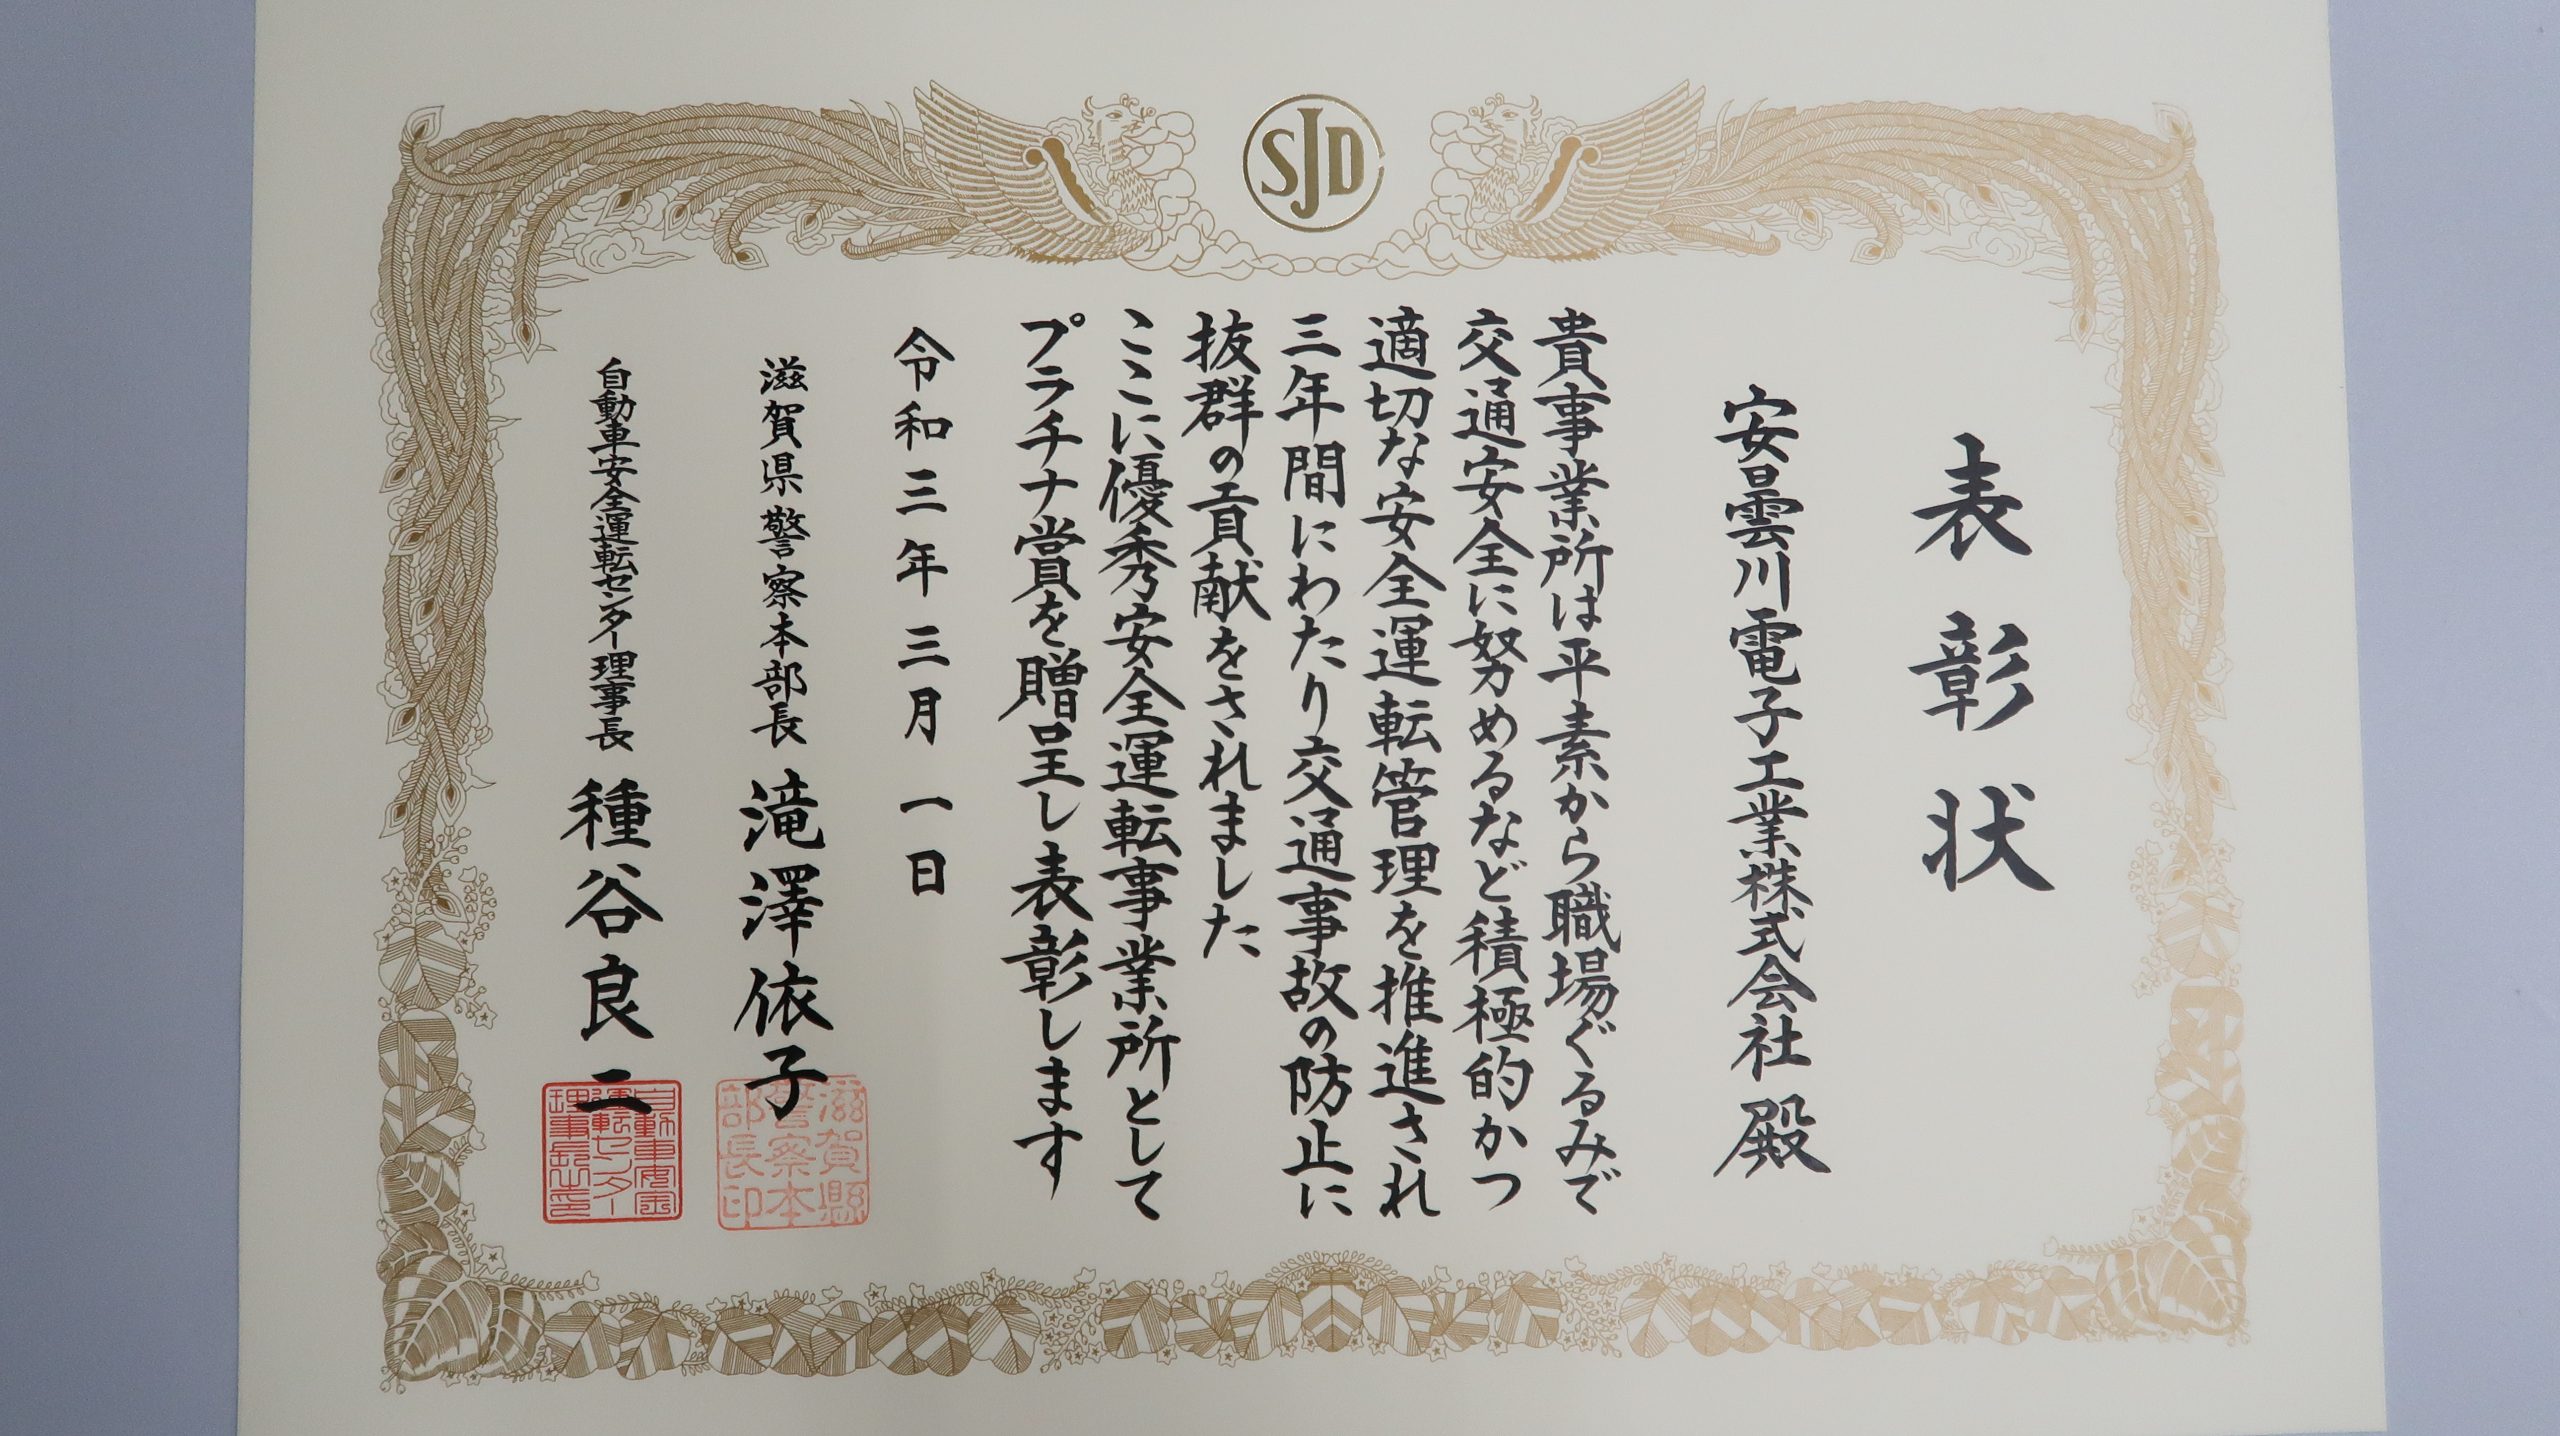 SJD
表彰状
安曇川電子工業株式会社 殿
貴事業所は平素から職場ぐるみで
交通安全に努めるなど積極的かつ
適切な安全運転管理を推進され
三年間にわたり交通事故の防止に
抜群の貢献をされました
ここに優秀安全運転事業所として
プラチナ賞を贈呈し表彰します
令和三年三月一日
滋賀県警察本部長 滝澤依子
滋賀縣
警察本
部長印
自動車安全運転センター理事長 種谷良二
自動車安全
運転センター
理事長之印